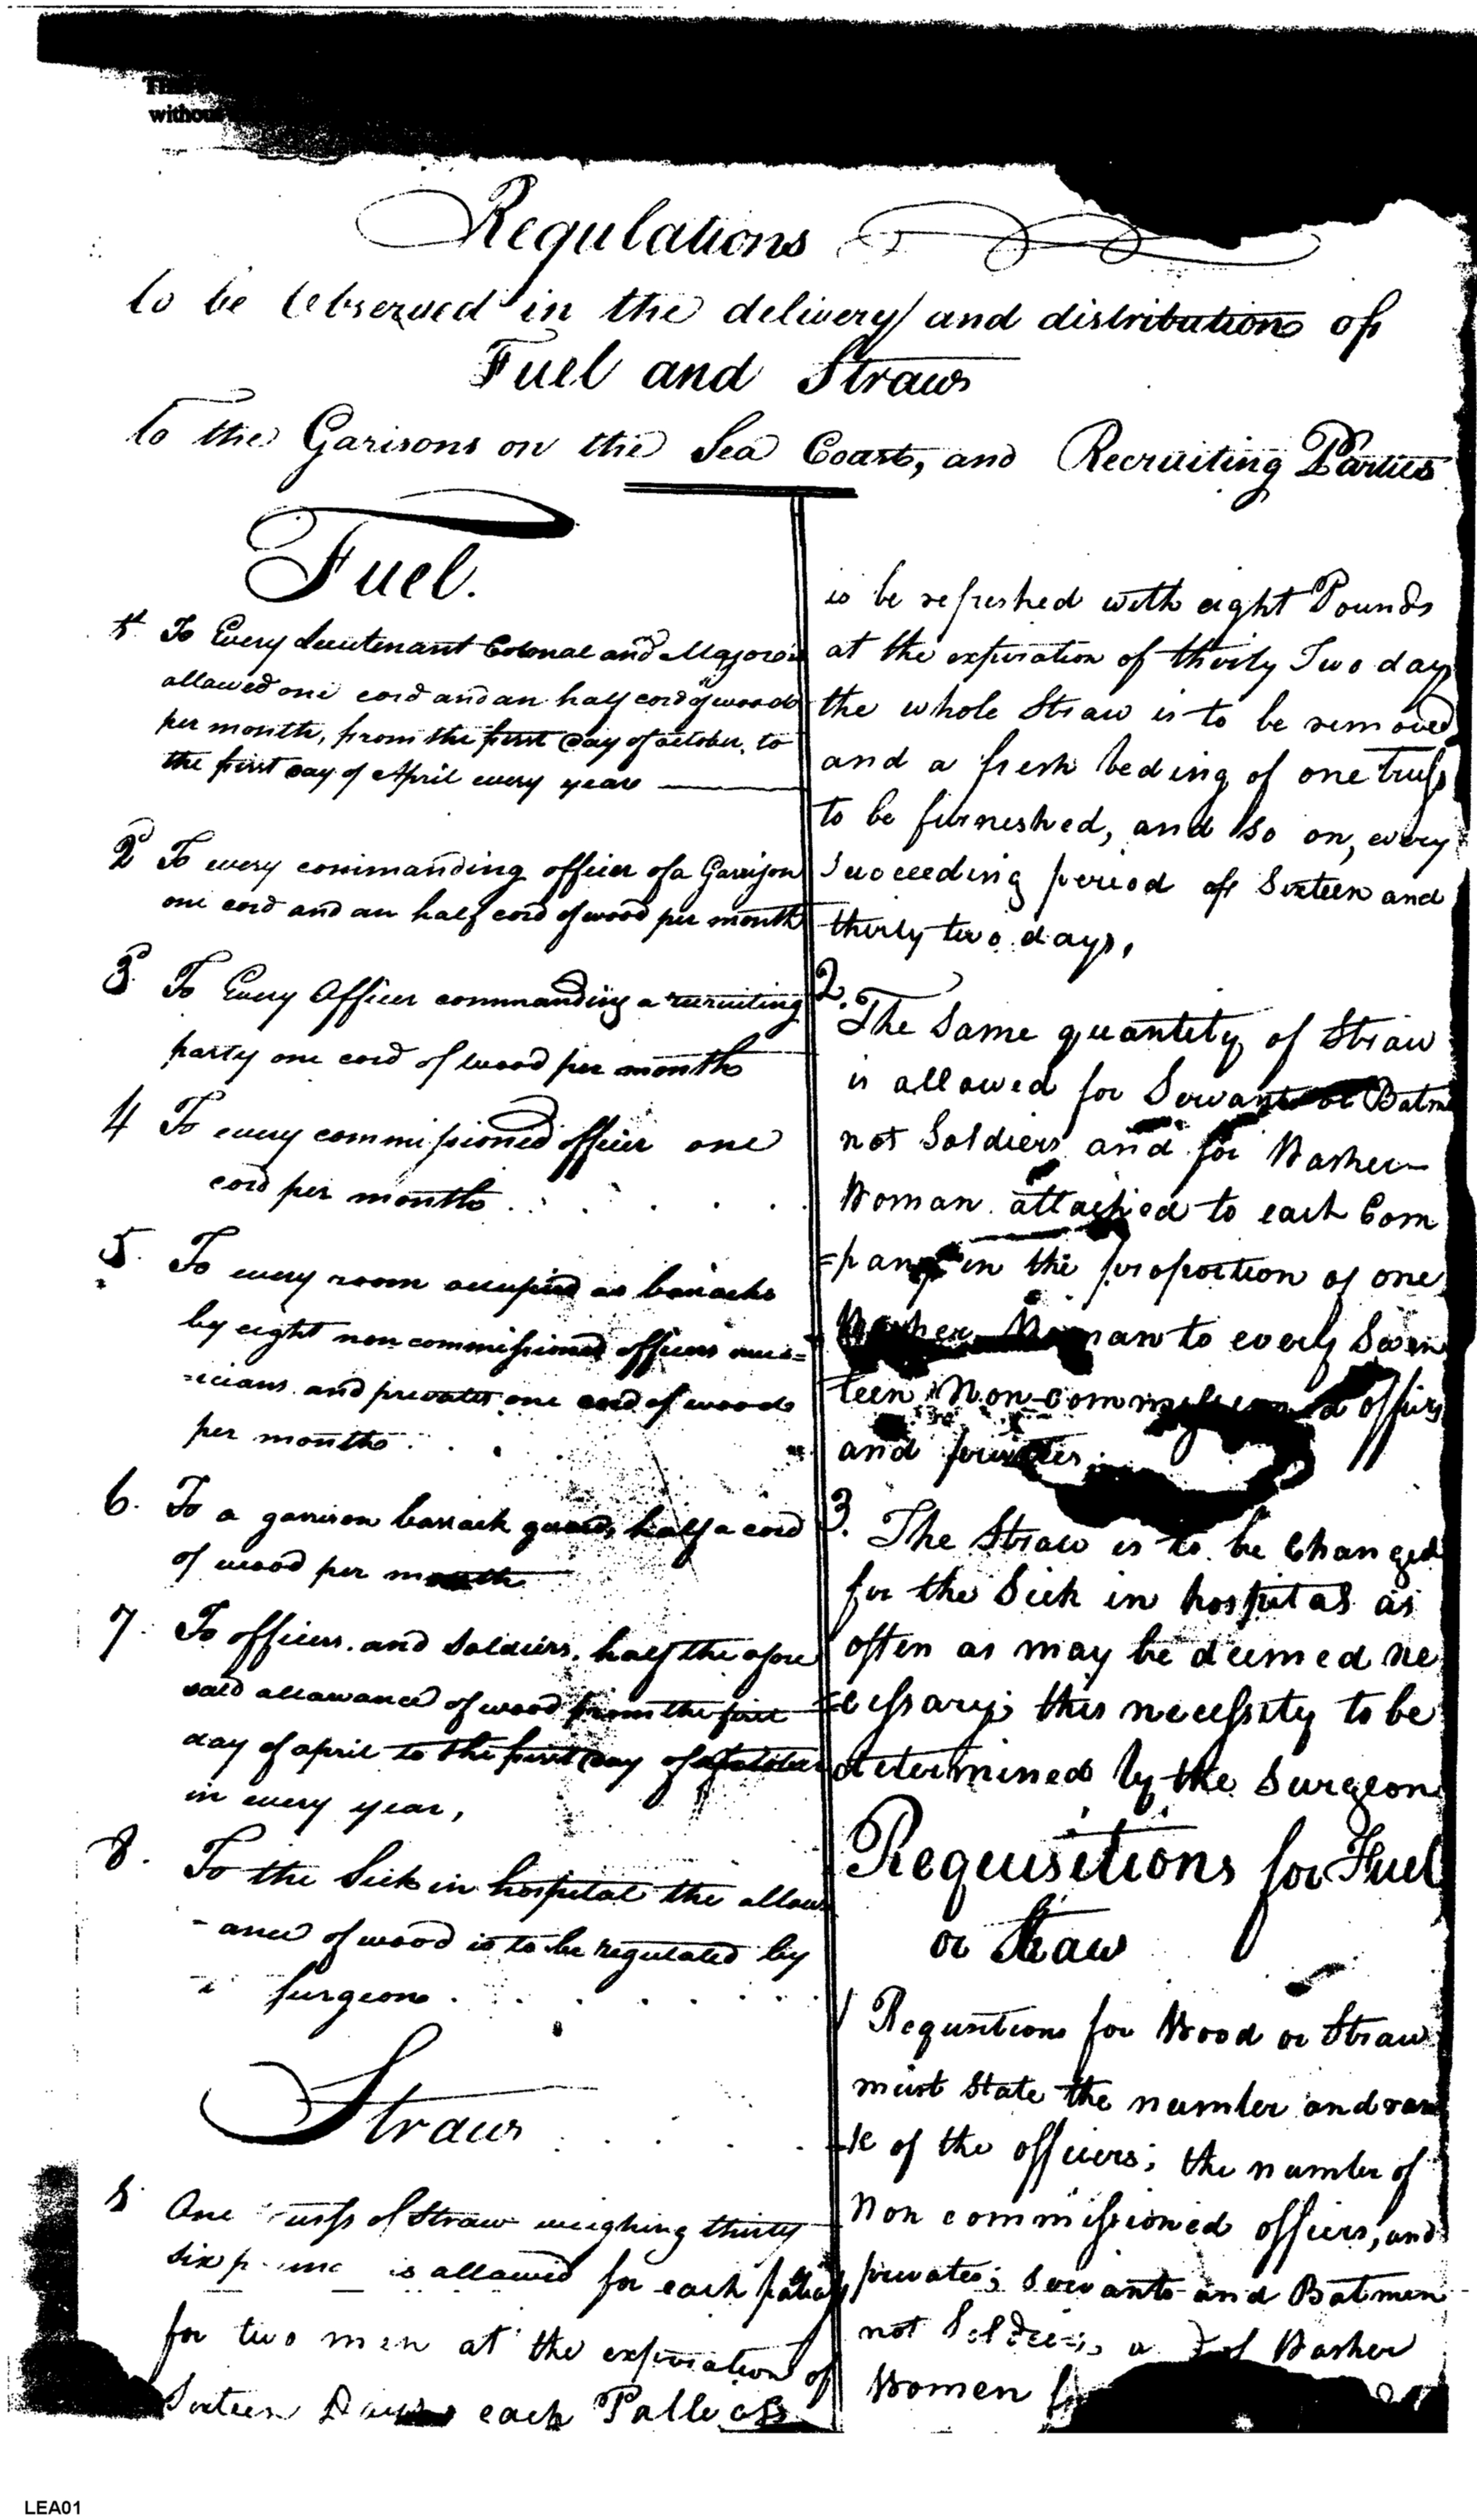 without
Regulations
to be Observed in the delivery and distribution of
Fuel and Straw
to the Garisons on the Sea Coast, and Recruiting Parties
Fuel.
1st To Every Lieutenant Colonal and Major is
allowed one cord and an half cord of wood
per month, from the first day of october, to
the first day of April every year
2d To every commanding officer of a Garrison
one cord and an half cord of wood per month
3d To Every Officer commanding a recruiting
party one cord of wood per month
4 To every commissioned officer one
cord per month
5. To every room occupied as barracks
by eight non commissioned officers mus=
=icians and privates one cord of wood
per month
6. To a garrison barrack guard, half a cord
of wood per month
7. To officers and Soldiers, half the afore
said allowance of wood from the first
day of april to the first day of october
in every year,
8. To the Sick in hospital the allow
-ance of wood is to be regulated by
surgeon
Straw
1 One of Straw weighing thirty
six is allowed for each
for two men at the expiration of
Sixteen Days each Palleass
is be refreshed with eight Pounds
at the expiration of thirty Two day
the whole Straw is to be removed
and a fresh beding of one truss
to be furneshed, and so on, every
succeeding period of Sixteen and
thirty two days,
2. The Same quantity of Straw
is allowed for Servants or Batm
not Soldiers and for Washer
Woman attached to each Com
=pany in the proportion of one
Washer Woman to every Seven
teen Non commissioned officers
and privates
3. The Straw is to be Changed
for the Sick in hospital as
often as may be deemed ne
=cessary; this necessity to be
determined by the Surgeon
Requisitions for Fuel
or Straw
1 Requsitions for Wood or Straw
must State the number and ran
=k of the officers; the number of
Non commissioned officers, and
privates; Servants and Batmen
not Soldiers, Washer
Women
LEA01